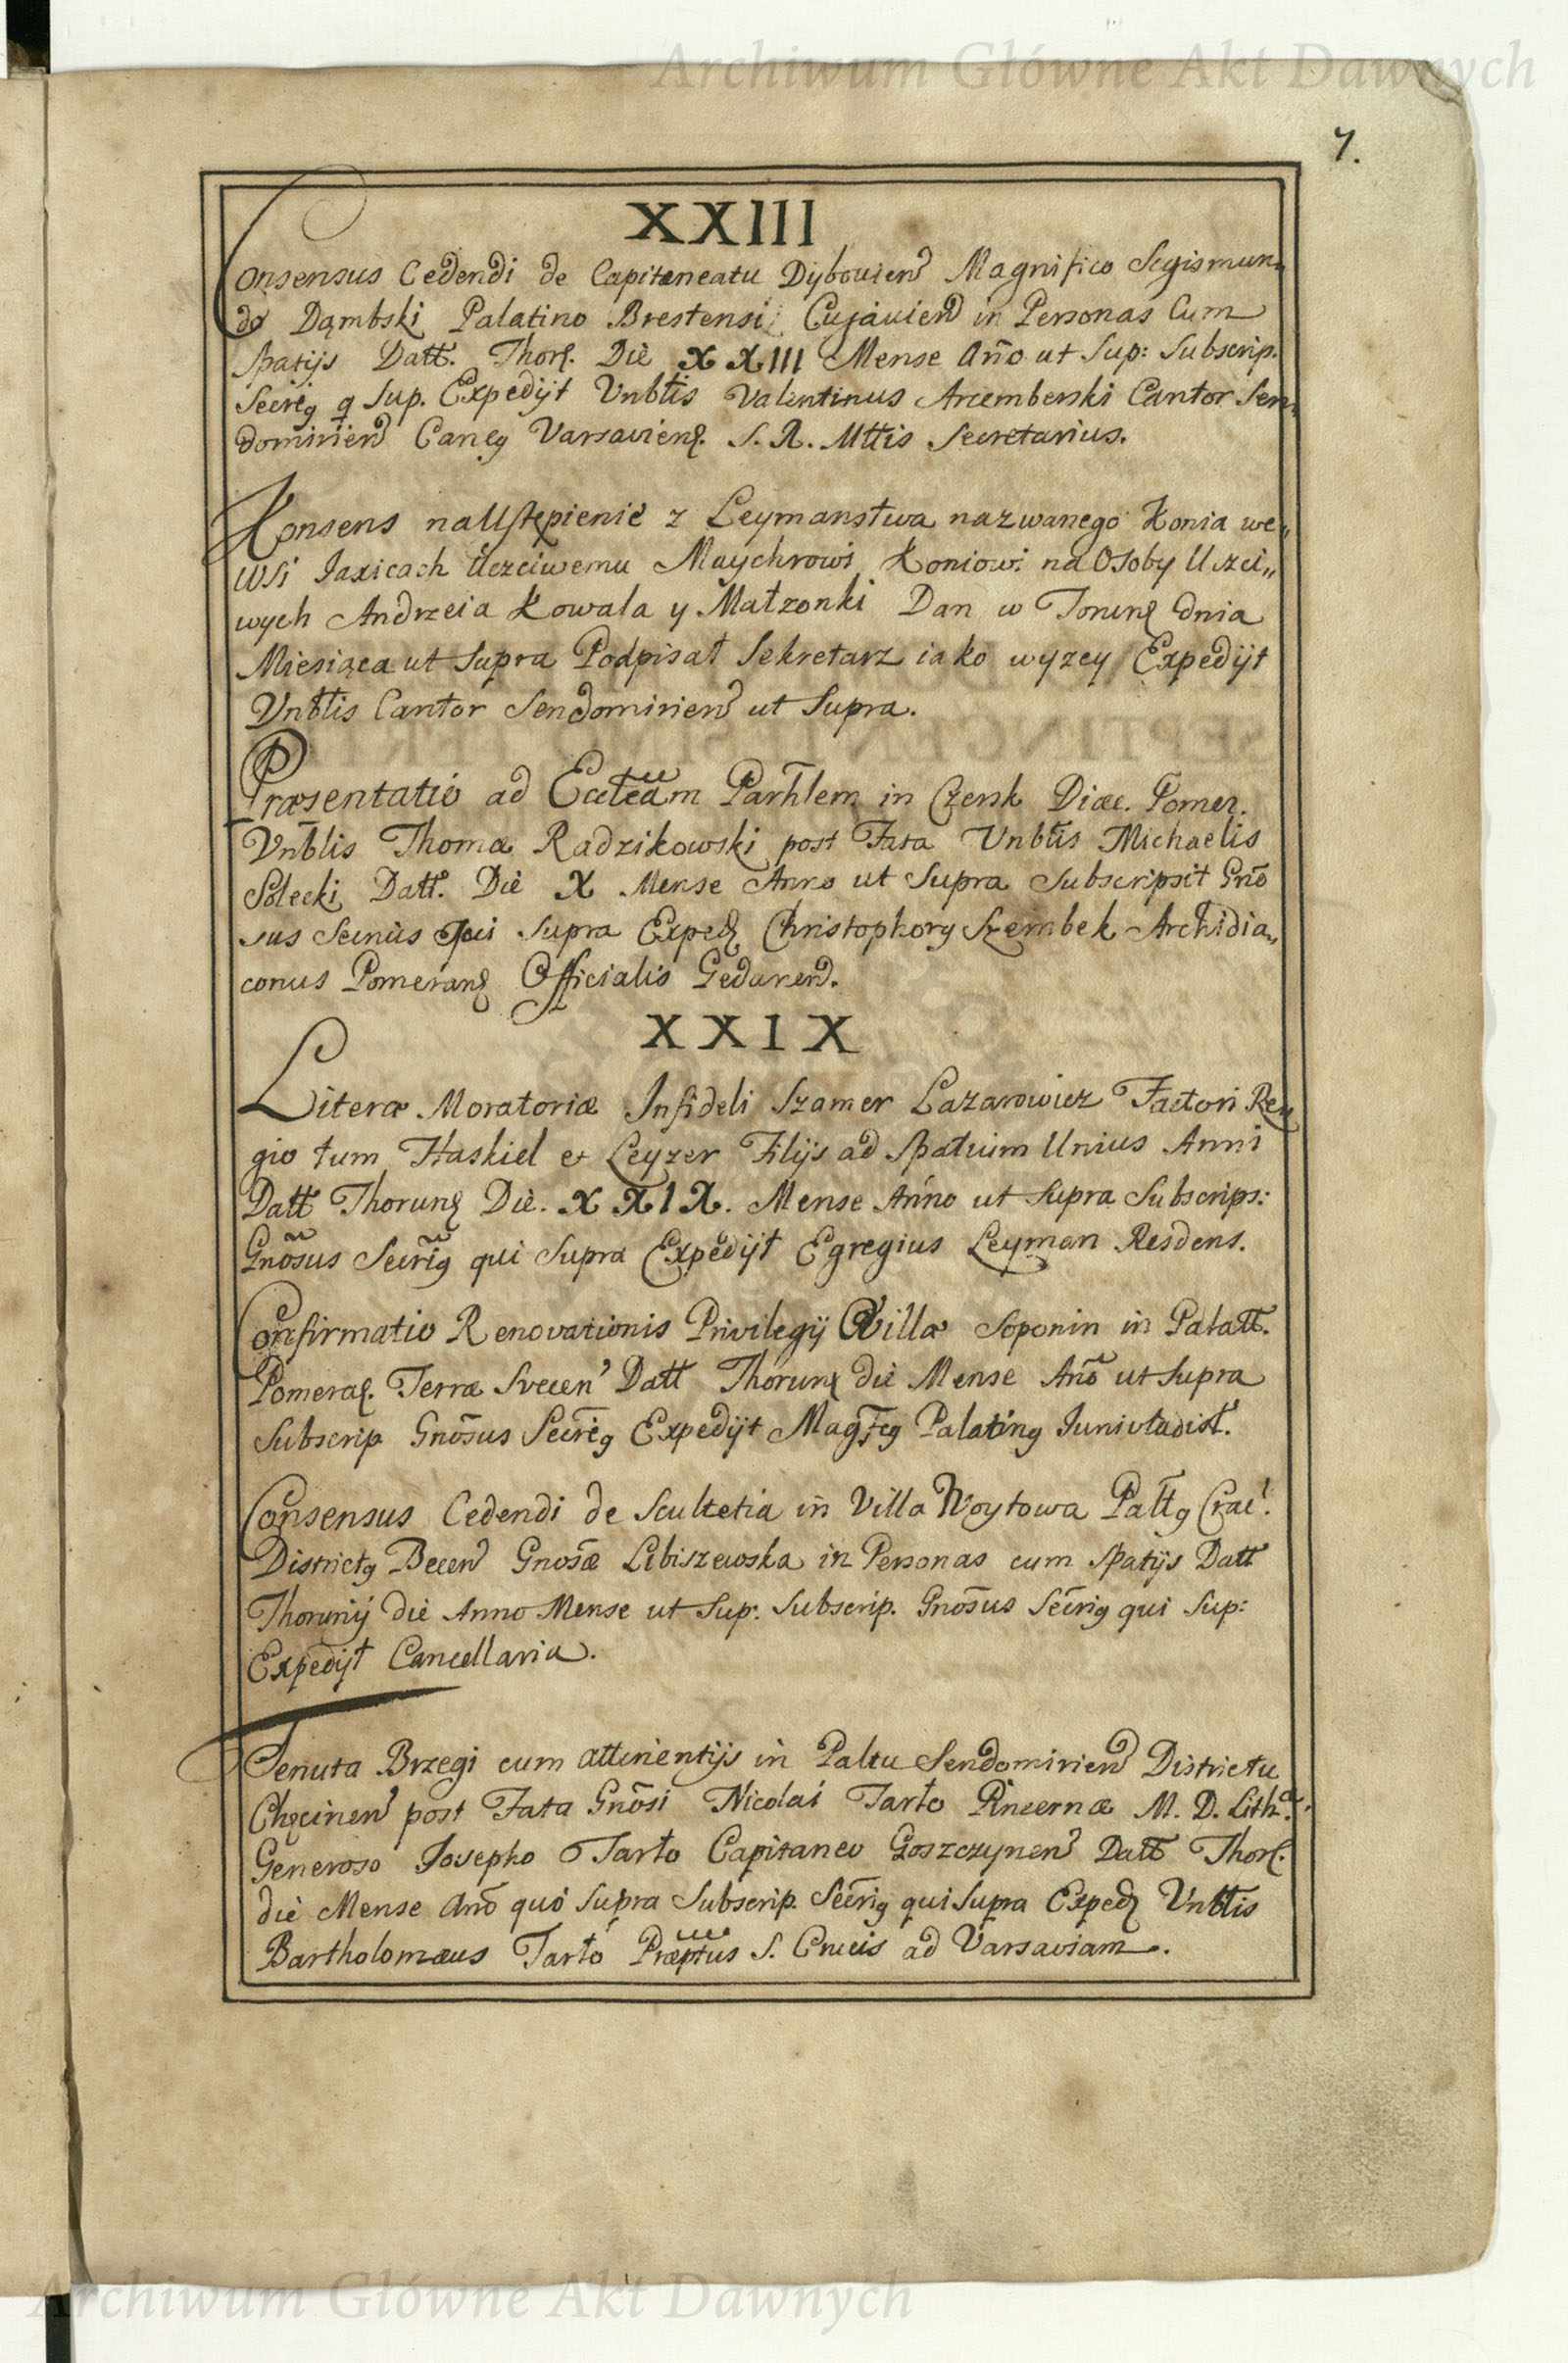 Archiwum Główne Akt Dawnych
7.
XXIII
Consensus Cedendi de Capitaneatu Dybovien Magnifico Sigismun„
do Dąmbski Palatino Brestensi Cujavien in Personas Cum
Spatijs Datt. Thor. Die XXIII Mense Año ut Sup: Subscrip.
Secrig q Sup. Expedijt Vnbtis Valentinus Arcemberski Cantor Sen„
domirien Caneg Varsavien. S. R. Mttis Secretarius.
Konsens na Ustępienie z Leymanstwa nazwanego Konia we„
wsi Iaxicach Uczciwemu Maychrowi Koniowi na Osoby Uczci„
wych Andrzeia Kowala y Małzonki Dan w Torun dnia
Miesiąca ut Supra Podpisał Sekretarz iako wyzey Expedijt
Vnbtis Cantor Sendomirien ut Supra.
Præsentatio ad Eccteam Parhlem in Czersk Diæc. Pomer.
Vnblis Thomæ Radzikowski post Fata Vnbtis Michaelis
Solecki Datt. Die X Mense Anno ut Supra Subscripsit Gnõ
sus Secriūs qui Supra Exped Christophorg Szembek Archidia„
conus Pomeran Officialis Gedanen.
XXIX
Literæ Moratoriæ Infideli Szamer Lazarowicz Factori Re„
gio tum Haskiel et Leyzer Filijs ad Spatium Unius Anni
Datt Thorun Die. XXIX. Mense Anno ut Supra Subscrips:
Gnõsus Secrig qui Supra Expedijt Egregius Leyman Resdens.
Confirmatio Renovationis Privilegij Villæ Soponin in Palatt.
Pomera. Terræ Svecen Datt Thorun die Mense Anõ ut Supra
Subscrip Gnõsus Secrig Expedijt Magfcg Palating Iunivladist.
Consensus Cedendi de Scultetia in Villa Woytowa Pattg Crac.
Districtg Becen Gnosæ Libiszewska in Personas cum Spatijs Datt
Thorunij die Anno Mense ut Sup: Subscrip. Gnõsus Secrig qui Sup:
Expedijt Cancellaria.
Tenuta Brzegi cum attinentijs in Paltu Sendomirien Districtu
Chęcinen post Fata Gnõsi Nicolai Tarło Pincernæ M. D. Lith.
Generoso Iosepho Tarło Capitaneo Goszczynen Datt Thor.
die Mense Anõ quo Supra Subscrip. Secrig qui Supra Exped Vnbtis
Bartholomæus Tarło Præptus S. Crucis ad Varsaviam.
Archiwum Główne Akt Dawnych